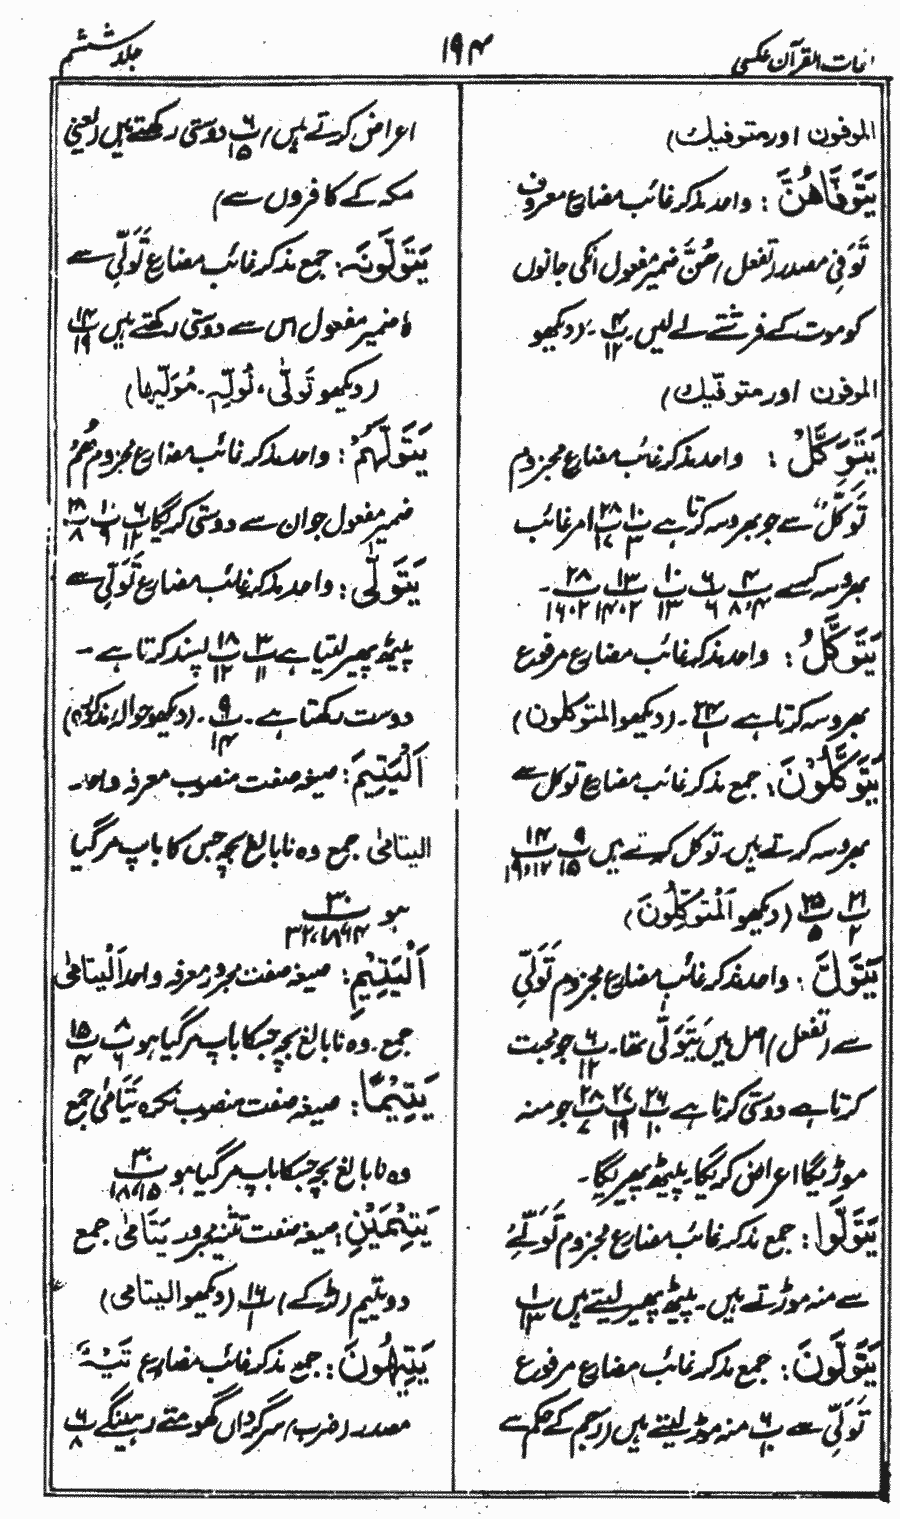 لغات القرآن عکسی
۱۹۴
جلد ششم
الموفون اور متوفیك)
یَتَوَفّٰاهُنَّ: واحد مذکر غائب مضارع معروف
تَوَفِّیْ مصدر (تفعل) هُنَّ ضمیر مفعول انکی جانوں
کو موت کے فرشتے لے لیں پ۴ ۱۲۔ (دیکھو
الموفون اور متوفّیك)
یَتَوَكَّلْ: واحد مذکر غائب مضارع مجزوم
تَوَکُّلٌ سے جو بھروسہ کرتا ہے پ۱۰ ۳ پ۲۸ ۱۷ امر غائب
بھروسہ کرے پ۴ ۸،۴ پ۶ ۶ پ۱۰ ۱۳ پ۱۳ ۱۴،۲ پ۲۸ ۱۶،۲۔
یَتَوَكَّلُ: واحد مذکر غائب مضارع مرفوع
بھروسہ کرتا ہے پ۲۴ ۱۔ (دیکھو المتوکلون)
یَتَوَكَّلُوْنَ: جمع مذکر غائب مضارع توکل سے
بھروسہ کرتے ہیں۔ توکل کرتے ہیں پ۹ ۱۵ پ۱۴ ۱۹،۱۲
پ۲۱ ۲ پ۲۵ ۵ (دیکھو اَلْمُتَوَکِّلُوْنَ)
یَتَوَلَّ: واحد مذکر غائب مضارع مجزوم تَوَلِّیْ
سے (تفعل) اصل میں یَتَوَلّٰی تھا۔ پ۶ ۱۲ جو محبت
کرتا ہے دوستی کرتا ہے پ۲۶ ۱۰ پ۲۷ ۱۹ پ۲۸ ۷ جو منہ
موڑیگا اعراض کریگا۔ پیٹھ پھیریگا۔
یَتَوَلَّوْا: جمع مذکر غائب مضارع مجزوم تَوَلِّیْ
سے منہ موڑتے ہیں۔ پیٹھ پھیر لیتے ہیں پ۱۰ ۱۳
یَتَوَلَّوْنَ: جمع مذکر غائب مضارع مرفوع
تَوَلِّیْ سے پ۶ ۱۰ منہ موڑ لیتے ہیں (رجم کے حکم سے
اعراض کرتے ہیں) پ۶ ۱۵ دوستی رکھتے ہیں (یعنی
مکہ کے کافروں سے)
یَتَوَلَّوْنَهٗ: جمع مذکر غائب مضارع تَوَلِّیْ سے
ہٗ ضمیر مفعول اس سے دوستی رکھتے ہیں پ۱۴ ۱۹
(دیکھو تَوَلّٰی، نُوَلِّہٖ۔ مُوَلِّیْہَا)
یَتَوَلَّهُمْ: واحد مذکر غائب مضارع مجزوم ھُمْ
ضمیر مفعول جو ان سے دوستی کریگا پ۶ ۱۲ پ۱۰ ۹ پ۲۸ ۸
یَتَوَلّٰی: واحد مذکر غائب مضارع تَوَلِّیْ سے
پیٹھ پھیر لیتا ہے پ۳ ۱۱ پ۱۸ ۱۲ پسند کرتا ہے۔
دوست رکھتا ہے۔ پ۹ ۱۴۔ (دیکھو حوالہ مذکورہ)
اَلْیَتِیْمَ: صیغہ صفت منصوب معرفہ واحد۔
الیتامیٰ جمع وہ نابالغ بچہ جس کا باپ مر گیا
ہو پ۳۰
اَلْیَتِیْمِ: صیغہ صفت مجرور معرفہ واحد اَلْیتَامٰی
جمع۔ وہ نابالغ بچہ جسکا باپ مر گیا ہو پ۸ ۶ پ۱۵ ۴
یَتِیْمًا: صیغہ صفت منصوب نکرہ یَتَامٰی جمع
وہ نابالغ بچہ جسکا باپ مر گیا ہو پ۳۰ ۱۸،۱۵
یَتِیْمَیْنِ: صیغہ صفت تثنیہ مجرور یَتَامٰی جمع
دو یتیم (لڑکے) پ۱۶ ۱ (دیکھو الیتامی)
یَتِیْهُوْنَ: جمع مذکر غائب مضارع تَیْہٌ
مصدر (ضرب) سرگرداں گھومتے رہینگے پ۶ ۸